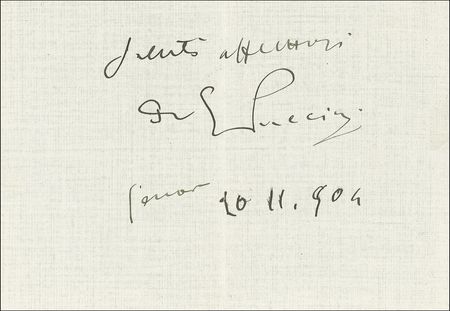 Saluti affettuosi
da G Puccini
Genova 20 11. 904